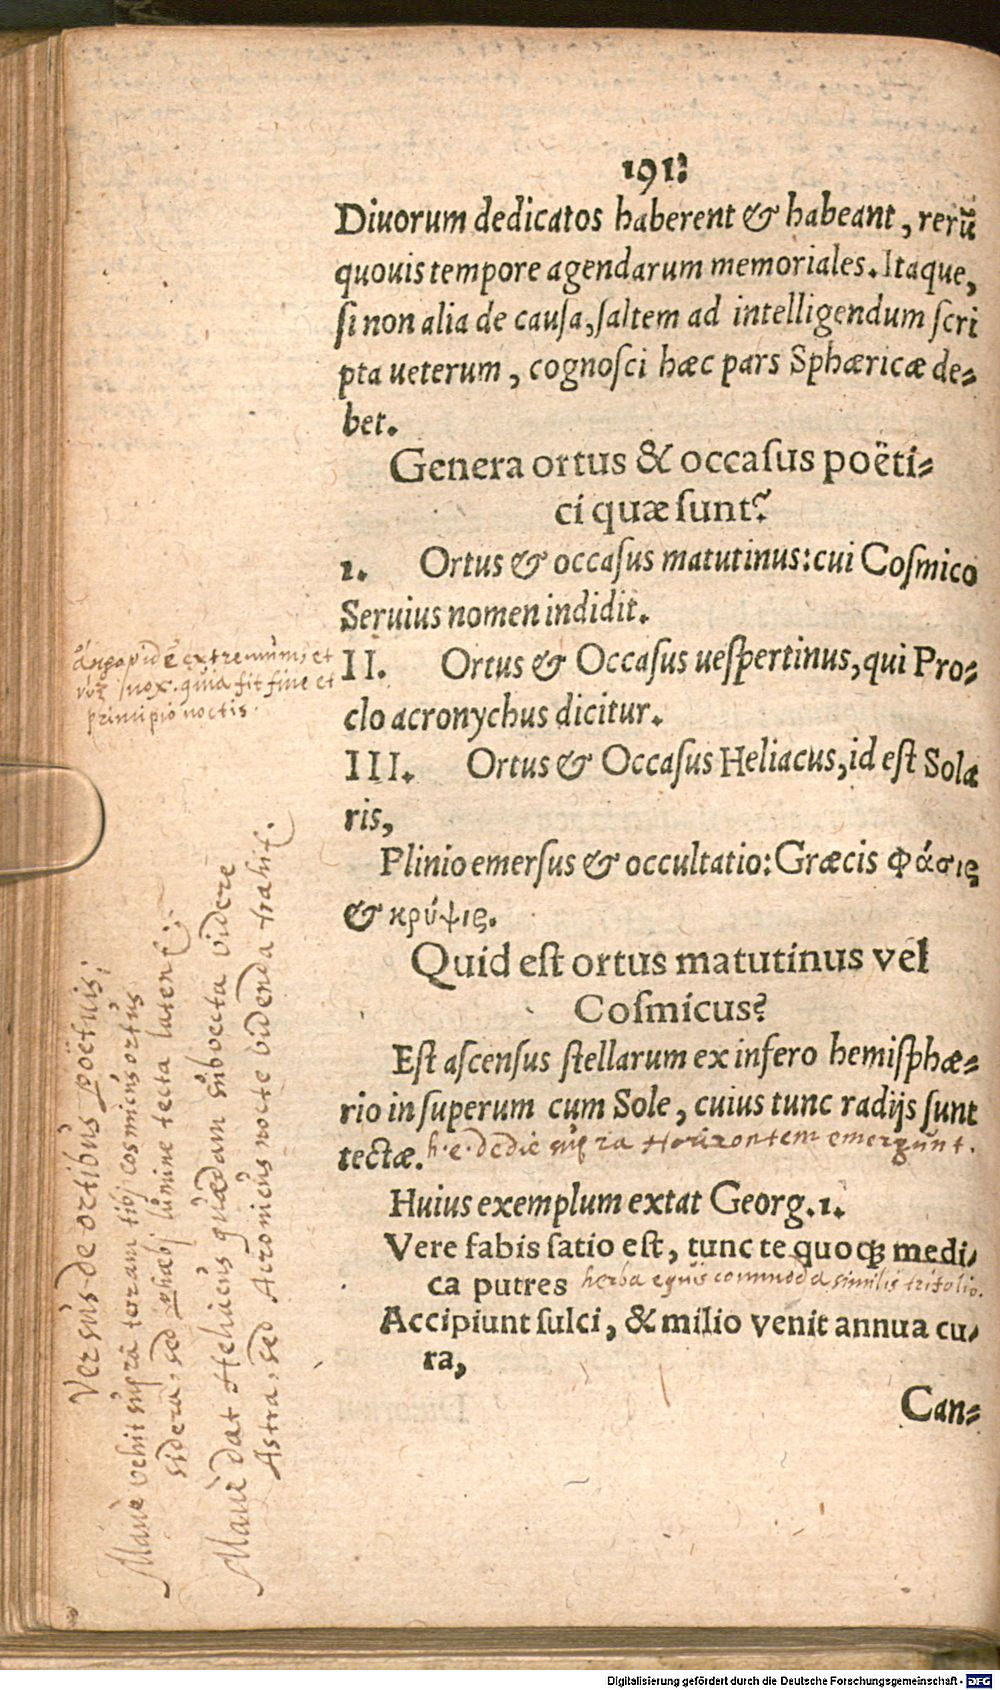 191.
Diuorum dedicatos haberent & habeant, rerũ
quouis tempore agendarum memoriales. Itaque,
ſi non alia de cauſa, ſaltem ad intelligendum ſcri
pta ueterum, cognoſci hæc pars Sphæricæ de-
bet.
Genera ortus & occaſus poëti-
ci quæ ſunt?
1. Ortus & occaſus matutinus: cui Coſmico
Seruius nomen indidit.
II. Ortus & Occaſus ueſpertinus, qui Pro-
clo acronychus dicitur.
III. Ortus & Occaſus Heliacus, id eſt Sola
ris,
Plinio emerſus & occultatio: Græcis Φάσις
& κρύψις.
Quid eſt ortus matutinus vel
Coſmicus?
Eſt aſcenſus ſtellarum ex infero hemiſphæ-
rio in ſuperum cum Sole, cuius tunc radijs ſunt
tectæ. h. e. de die supra Horizontem emergunt.
Huius exemplum extat Georg. 1.
Vere fabis ſatio eſt, tunc te quoqꝫ medi-
ca putres herba equis commoda similis trifolio.
Accipiunt ſulci, & milio venit annua cu-
ra,
Can-
extremum, et
nox. quia fit fine et
principio noctis.
Versus de ortibus poëtuis;
Manè vehit supra terram tibj cosmicus ortus
sidera, sed phæbj lumine tecta latent.
Manè dat Heliacus quædam subvecta videre
Astra, sed Acronicus nocte videnda trahit.
Digitalisierung gefördert durch die Deutsche Forschungsgemeinschaft - DFG